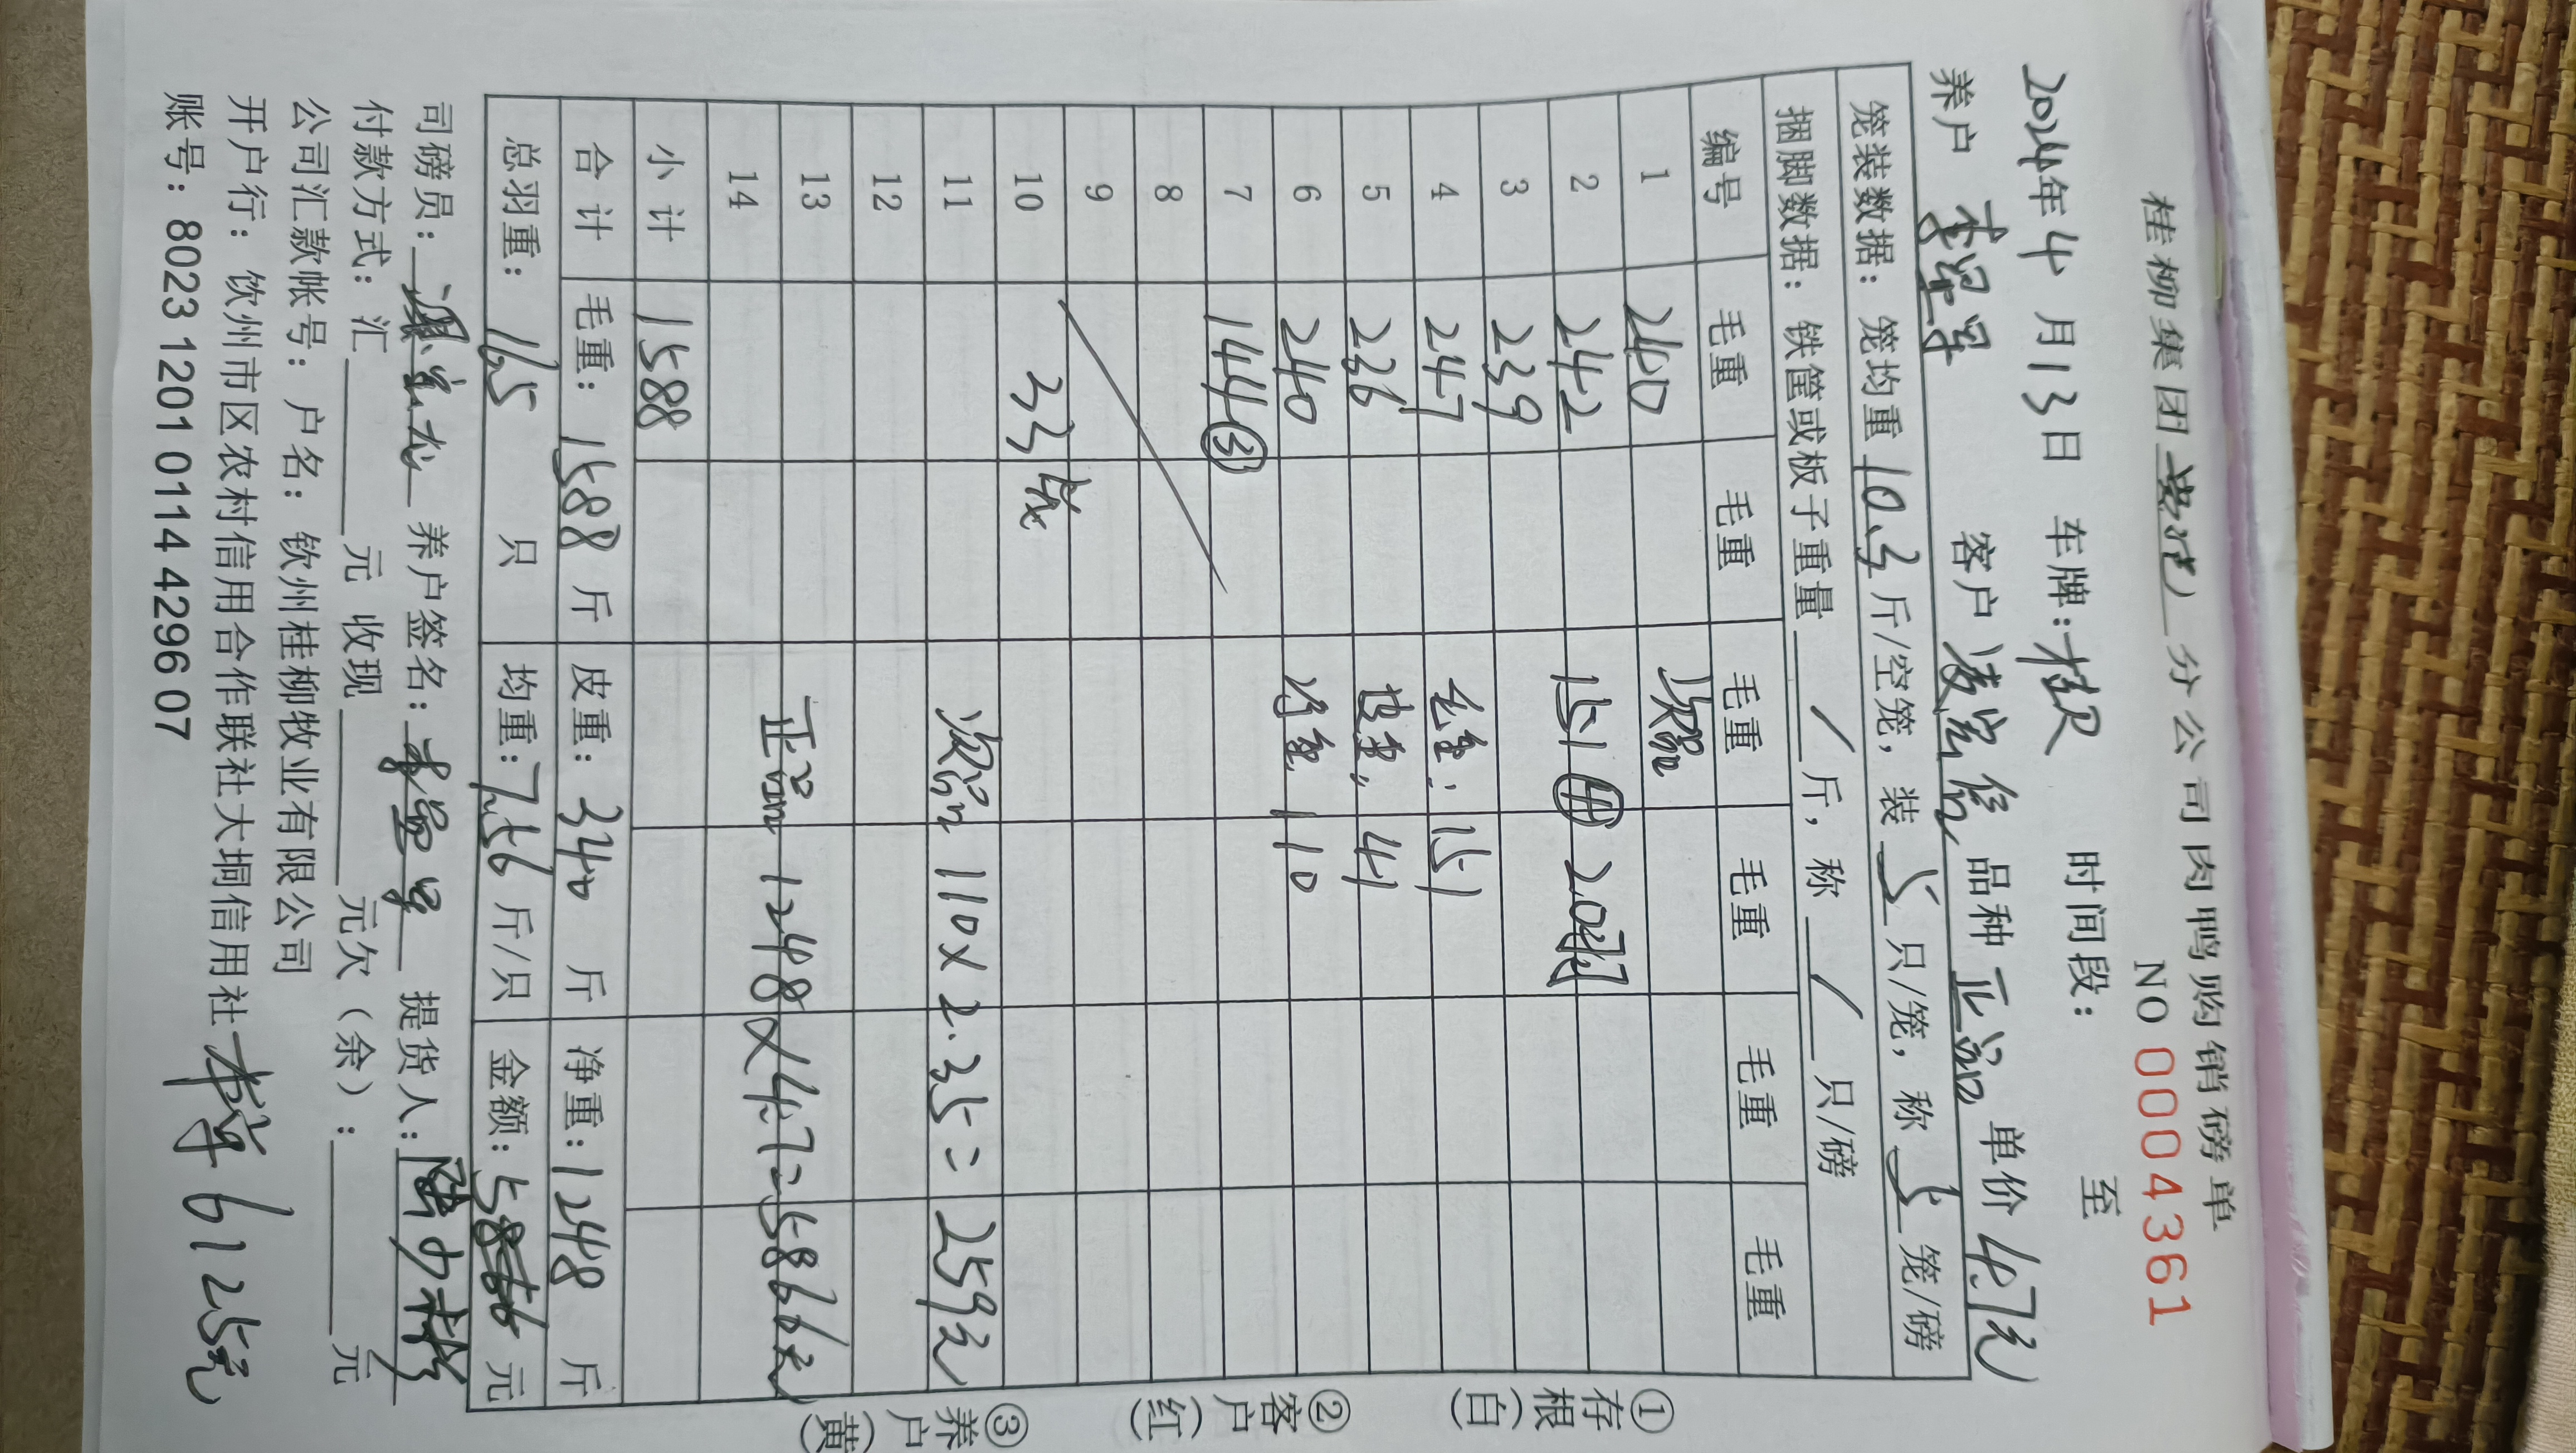 桂柳集团 分公司肉鸭购销磅单
NO 0004361
2024年4月13日 车牌: 时间段: 至
养户 客户 品种 正品 单价 4.7元
笼装数据: 笼均重 10.3 斤/空笼, 装 5 只/笼, 称 5 笼/磅
捆脚数据: 铁筐或板子重量 / 斤, 称 / 只/磅
编号 毛重 毛重 毛重 毛重 毛重 毛重
1 240 次品
2 242 151 ④ 20只
3 239
4 247 毛重: 151
5 236 皮重: 41
6 240 净重: 110
7 144 ③
8
9
10 33笼
11 次品 110×2.35=259元
12
13 正品 1248×4.7=5866元
14
小计 1588
合计 毛重: 1588 斤 皮重: 340 斤 净重: 1248 斤
总羽重: 165 只 均重: 7.56 斤/只 金额: 5866 元
司磅员: 养户签名: 提货人:
付款方式: 汇 元 收现 元欠(余): 元
公司汇款帐号: 户名: 钦州桂柳牧业有限公司
开户行: 钦州市区农村信用合作联社大垌信用社 6125元
账号: 8023 1201 0114 4296 07
①存根(白)
②客户(红)
③养户(黄)